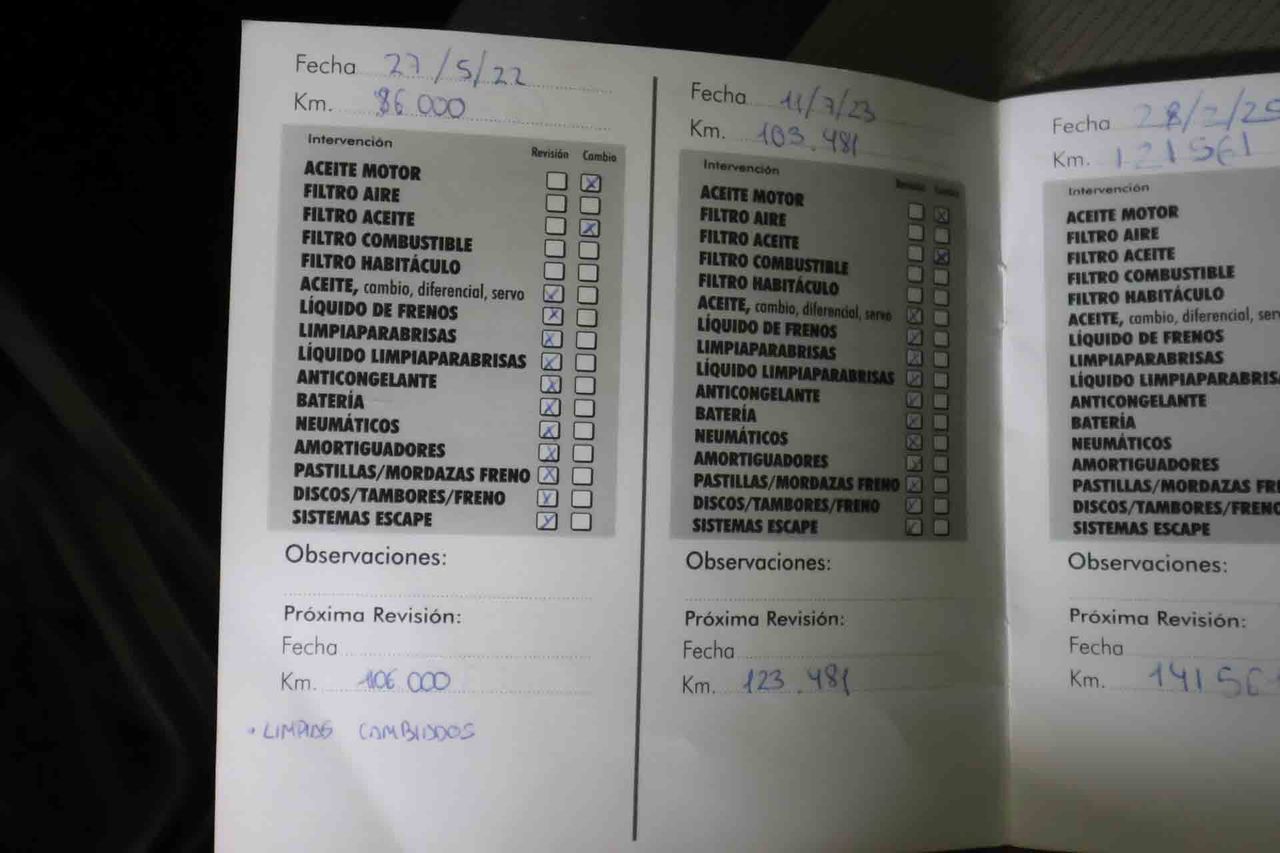 Fecha 27/5/22
Km. 86.000
Intervención Revisión Cambio
ACEITE MOTOR
FILTRO AIRE
FILTRO ACEITE
FILTRO COMBUSTIBLE
FILTRO HABITÁCULO
ACEITE, cambio, diferencial, servo
LÍQUIDO DE FRENOS
LIMPIAPARABRISAS
LÍQUIDO LIMPIAPARABRISAS
ANTICONGELANTE
BATERÍA
NEUMÁTICOS
AMORTIGUADORES
PASTILLAS/MORDAZAS FRENO
DISCOS/TAMBORES/FRENO
SISTEMAS ESCAPE
Observaciones:
Próxima Revisión:
Fecha
Km. 106.000
Fecha 11/7/23
Km. 103.481
Intervención Revisión Cambio
ACEITE MOTOR
FILTRO AIRE
FILTRO ACEITE
FILTRO COMBUSTIBLE
FILTRO HABITÁCULO
ACEITE, cambio, diferencial, servo
LÍQUIDO DE FRENOS
LIMPIAPARABRISAS
LÍQUIDO LIMPIAPARABRISAS
ANTICONGELANTE
BATERÍA
NEUMÁTICOS
AMORTIGUADORES
PASTILLAS/MORDAZAS FRENO
DISCOS/TAMBORES/FRENO
SISTEMAS ESCAPE
Observaciones:
Próxima Revisión:
Fecha
Km. 123.481
Fecha 28/2/25
Km. 121561
Intervención
ACEITE MOTOR
FILTRO AIRE
FILTRO ACEITE
FILTRO COMBUSTIBLE
FILTRO HABITÁCULO
ACEITE, cambio, diferencial, ser
LÍQUIDO DE FRENOS
LIMPIAPARABRISAS
LÍQUIDO LIMPIAPARABRIS
ANTICONGELANTE
BATERÍA
NEUMÁTICOS
AMORTIGUADORES
PASTILLAS/MORDAZAS FR
DISCOS/TAMBORES/FRENO
SISTEMAS ESCAPE
Observaciones:
Próxima Revisión:
Fecha
Km. 141561